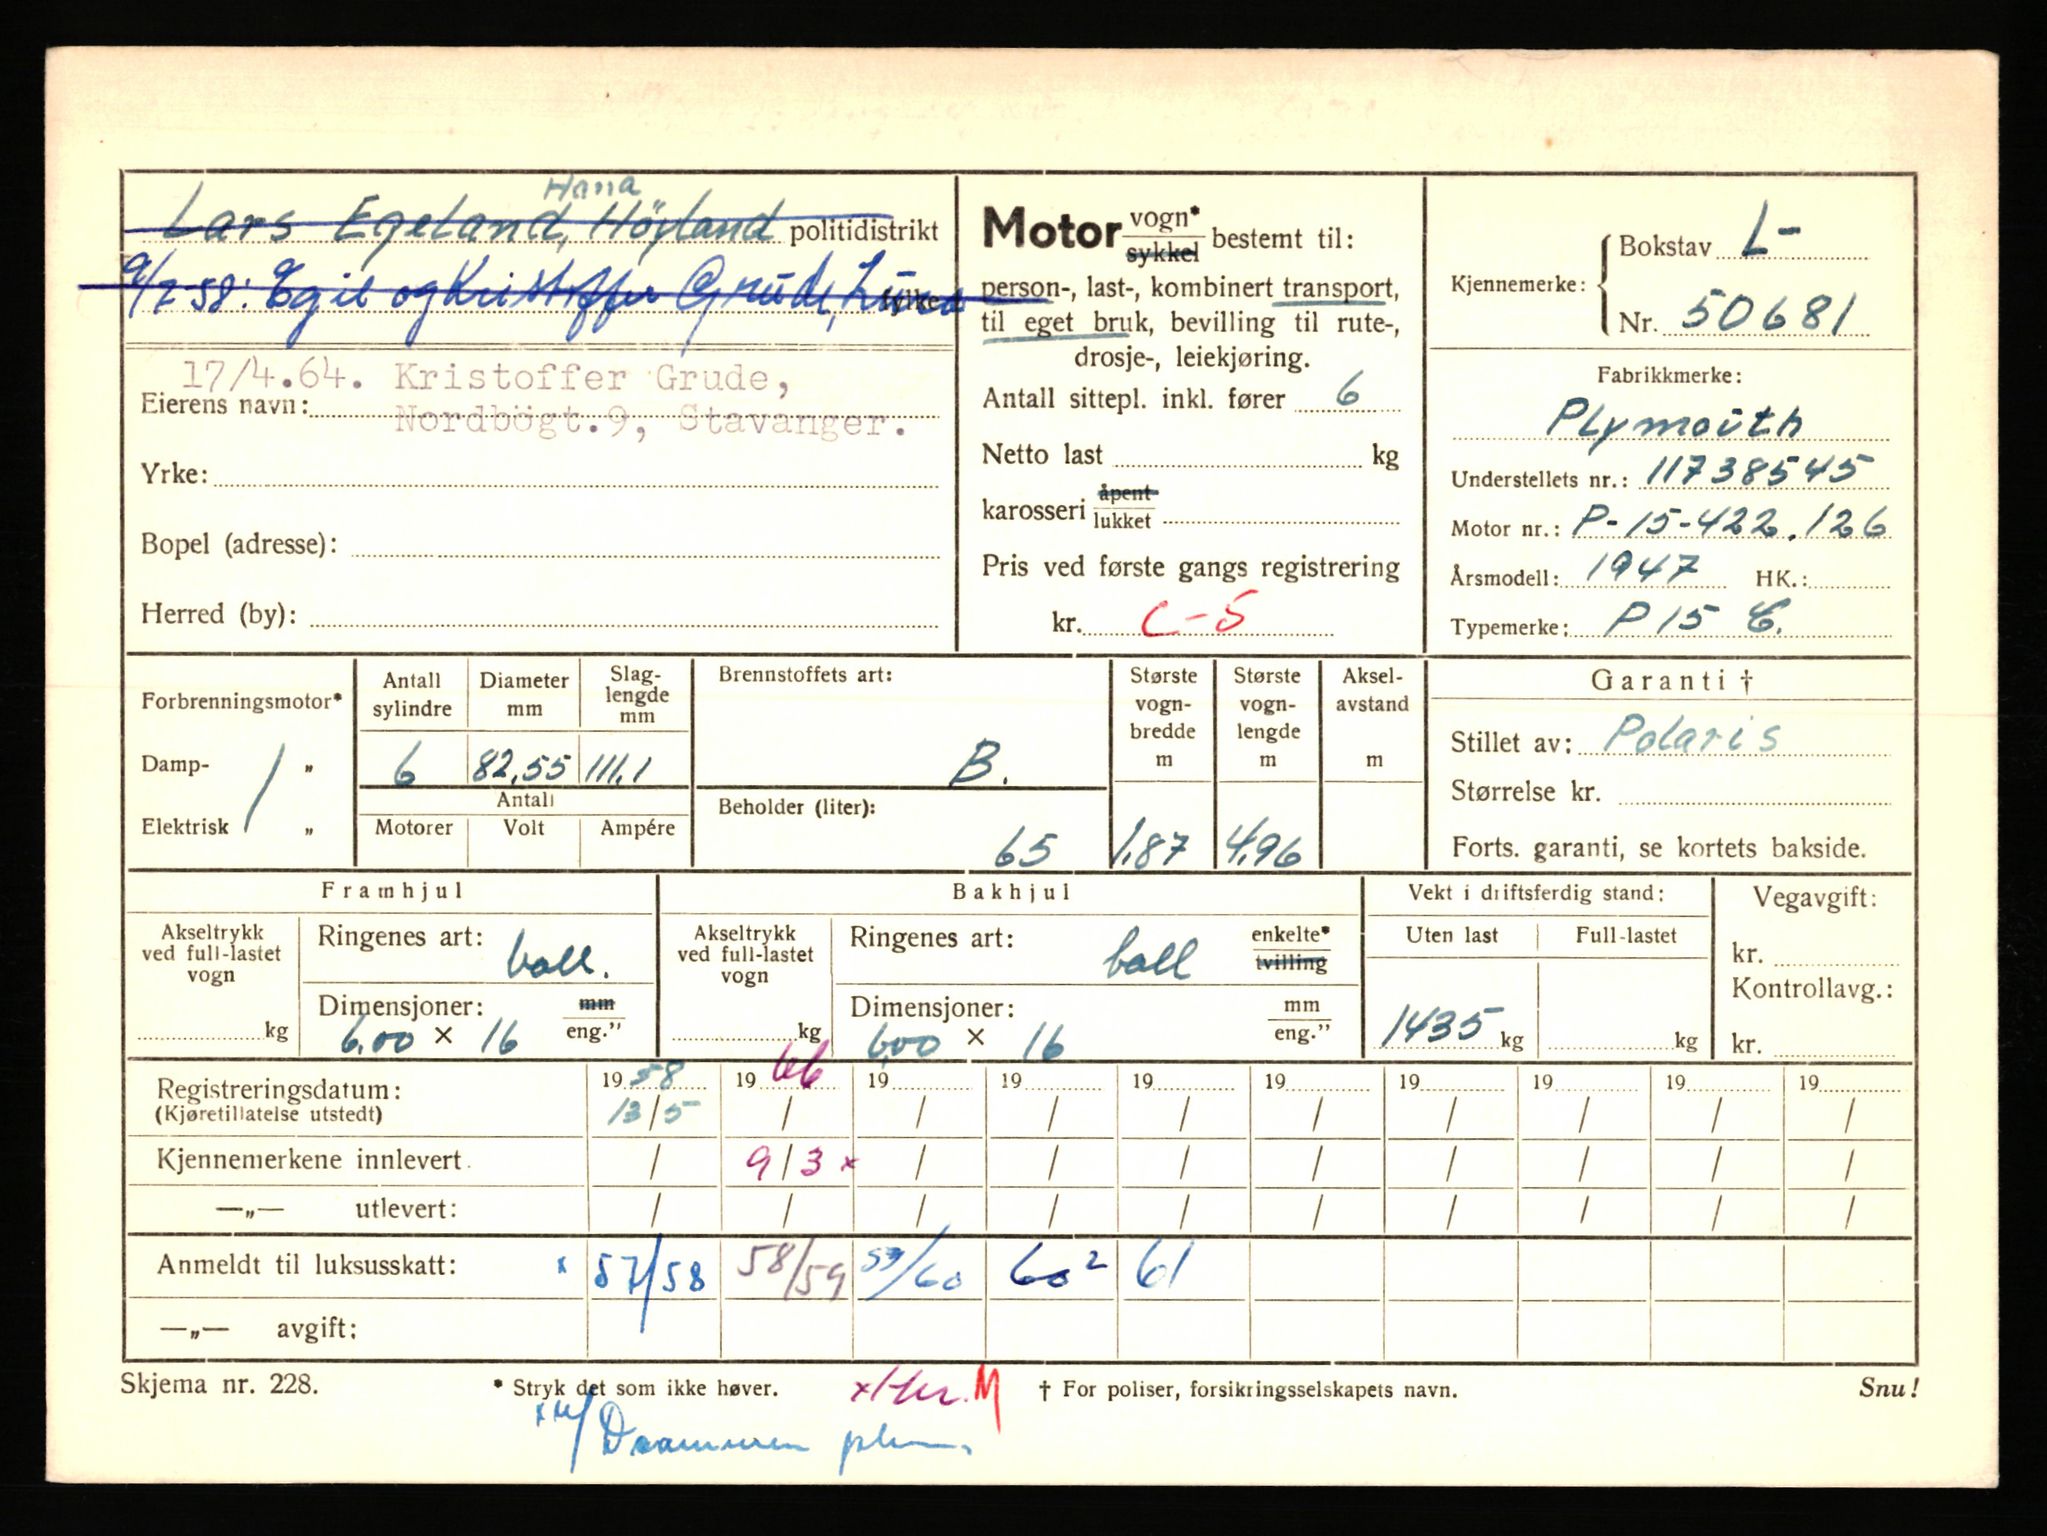 Hana
Lars Egeland, Höyland politidistrikt
9/7-58: Egil og Kristoffer Grude, Lura fylke
17/4.64. Kristoffer Grude,
Eierens navn: Nordbögt.9, Stavanger.
Yrke:
Bopel (adresse):
Herred (by):
Motor vogn* sykkel bestemt til:
person-, last-, kombinert transport,
til eget bruk, bevilling til rute-,
drosje-, leiekjøring.
Antall sittepl. inkl. fører 6
Netto last kg
karosseri åpent lukket
Pris ved første gangs registrering
kr. C-5
Kjennemerke: Bokstav L-
Nr. 50681
Fabrikkmerke:
Plymouth
Understellets nr.: 11738545
Motor nr.: P-15-422.126
Årsmodell: 1947 HK.:
Typemerke: P 15 C.
Forbrenningsmotor*
Damp- „
Elektrisk „
Antall sylindre
6
Diameter mm
82,55
Slag-lengde mm
111,1
Antall
Motorer Volt Ampére
Brennstoffets art:
B.
Beholder (liter):
65
Største vogn-bredde m
1.87
Største vogn-lengde m
4.96
Aksel-avstand m
Garanti †
Stillet av: Polaris
Størrelse kr.
Forts. garanti, se kortets bakside.
Framhjul
Akseltrykk ved full-lastet vogn
kg
Ringenes art: ball.
Dimensjoner: mm
6.00 × 16 eng.”
Bakhjul
Akseltrykk ved full-lastet vogn
kg
Ringenes art: ball enkelte* tvilling
Dimensjoner: mm
6.00 × 16 eng.”
Vekt i driftsferdig stand:
Uten last Full-lastet
1435 kg kg
Vegavgift:
kr.
Kontrollavg.:
kr.
Registreringsdatum: 1958 1966 19 19 19 19 19 19 19 19
(Kjøretillatelse utstedt) 13/5 / / / / / / / / /
Kjennemerkene innlevert / 9/3 x / / / / / / / /
—„— utlevert: / / / / / / / / / /
Anmeldt til luksusskatt: x 57/58 58/59 59/60 60² 61
—„— avgift:
Skjema nr. 228. * Stryk det som ikke høver. M † For poliser, forsikringsselskapets navn. Snu!